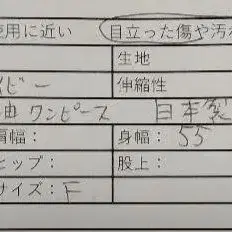 使用に近い 目立った傷や汚
生地
ビー 伸縮性
ワンピース 日本製
肩幅： 身幅：55
ヒップ： 股上：
サイズ：F